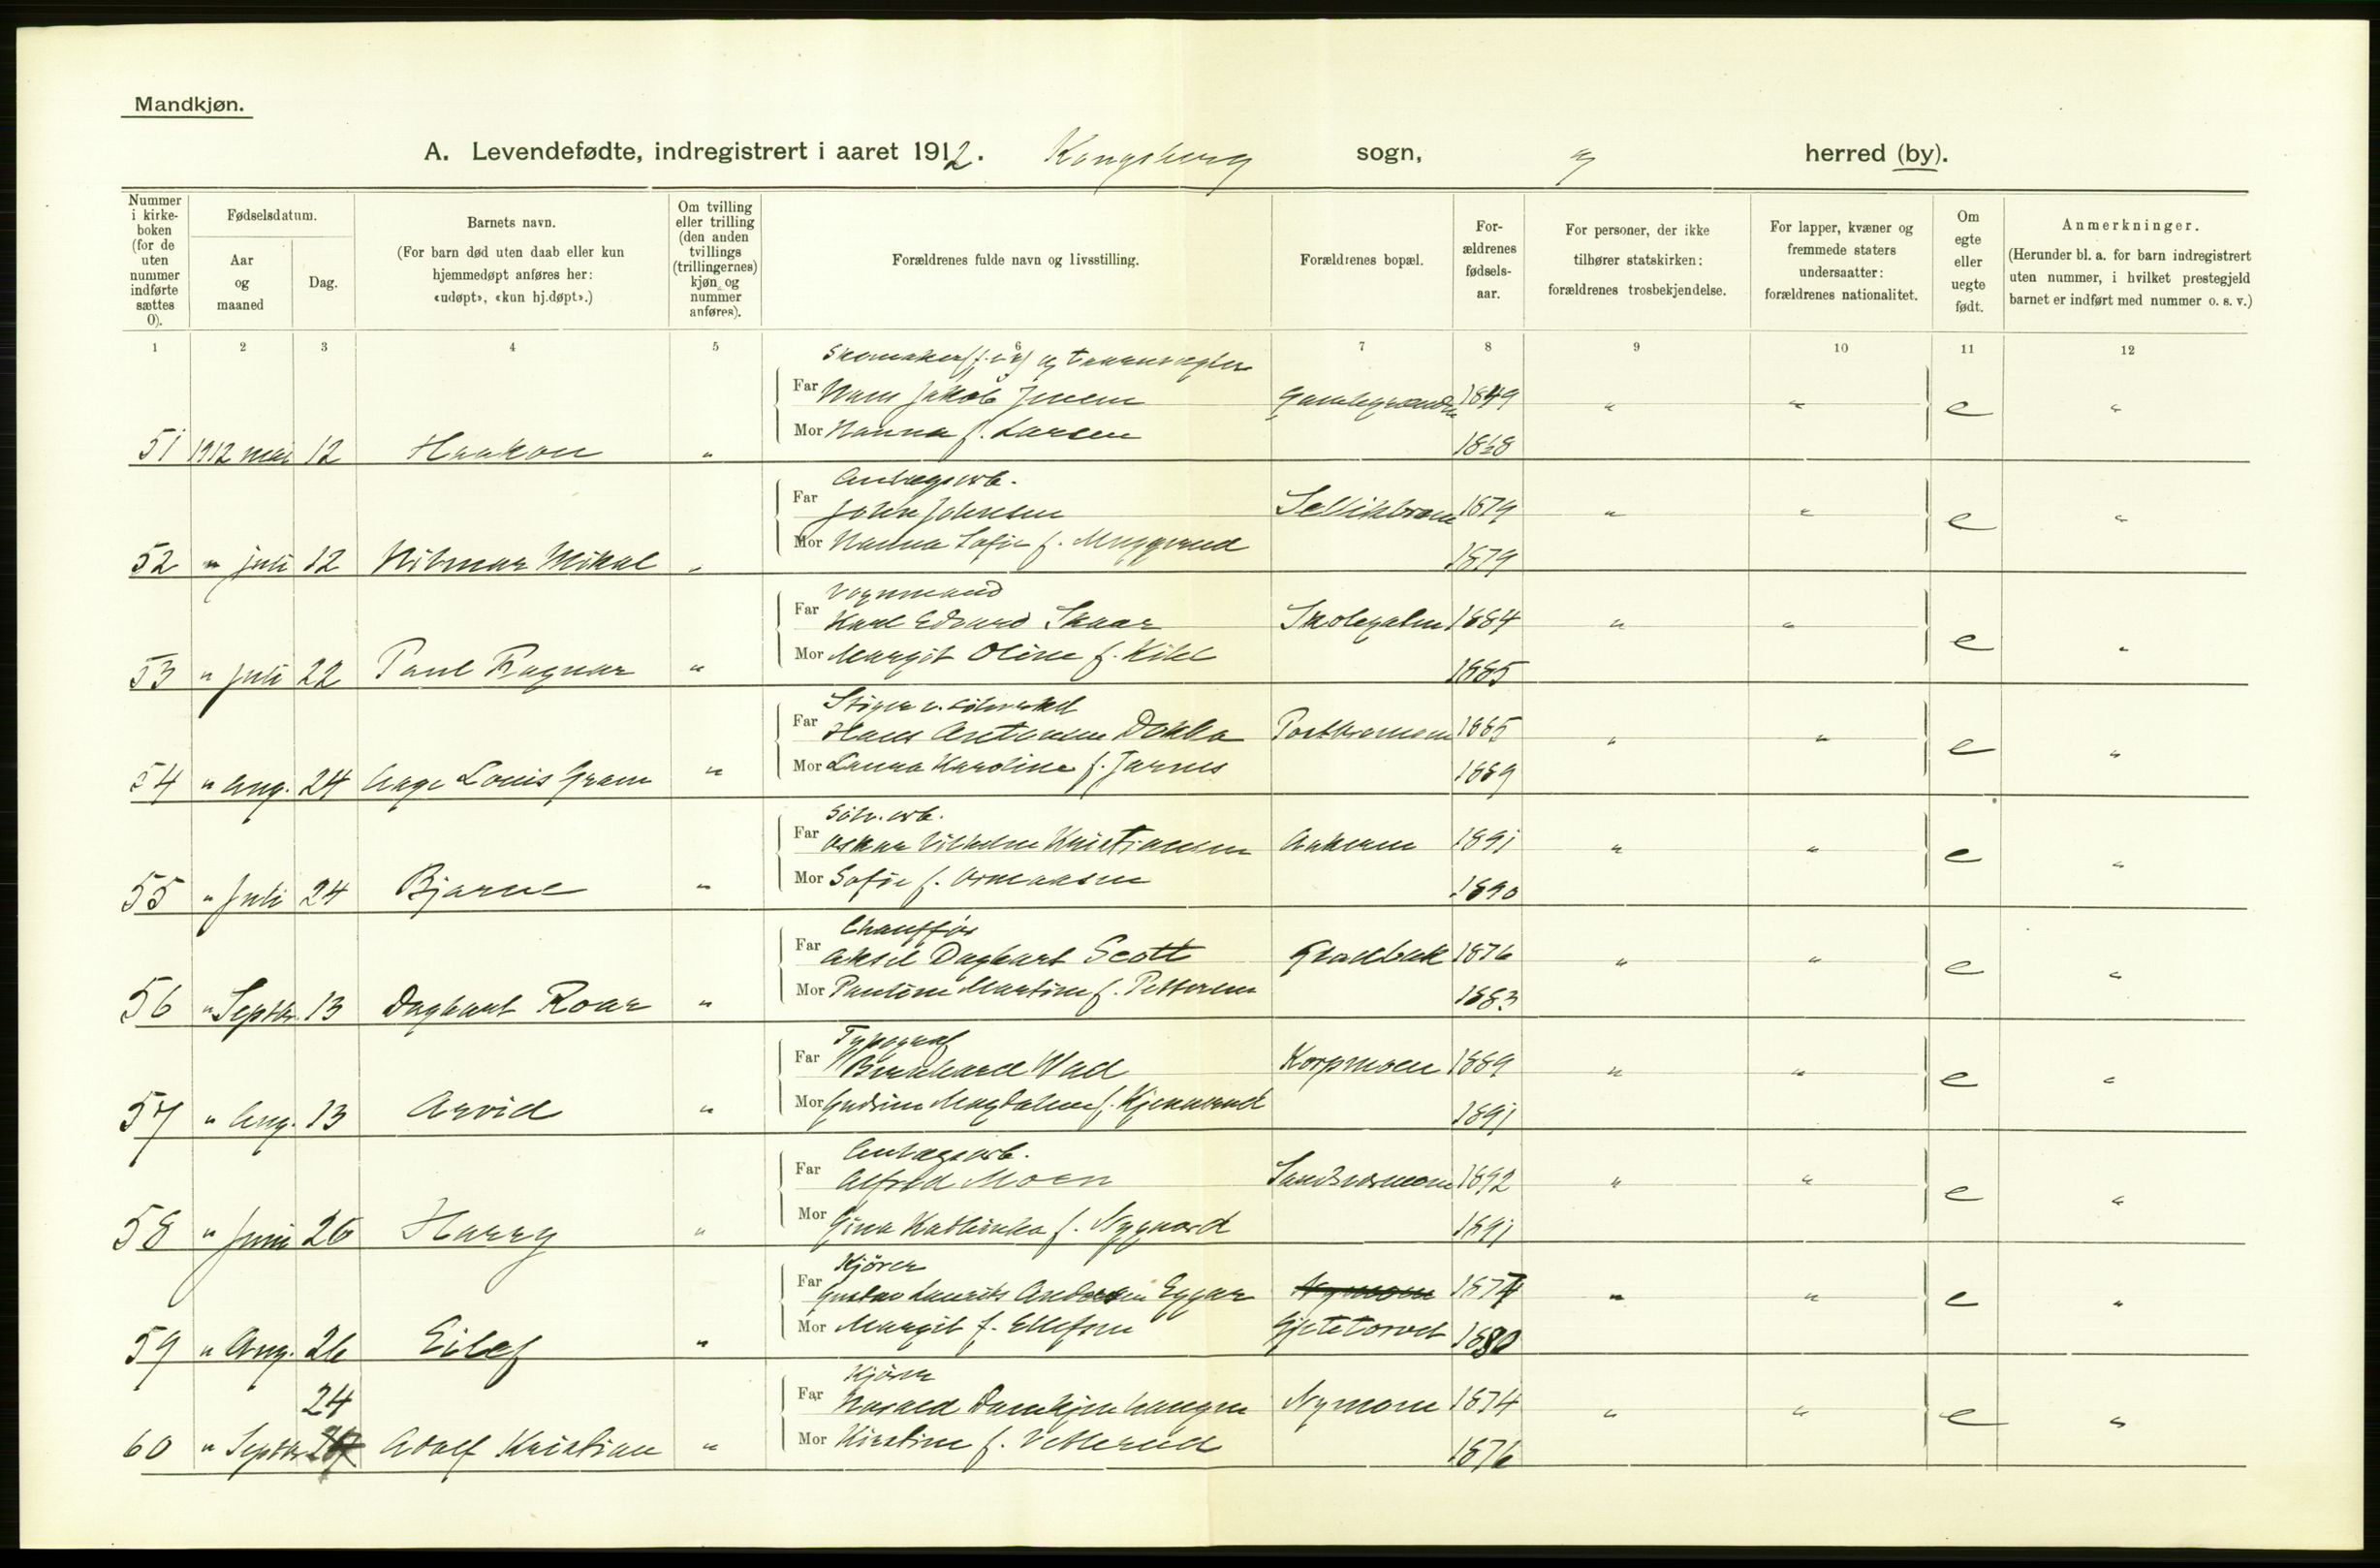 Mandkjøn.
A. Levendefødte, indregistrert i aaret 1912. Kongsberg sogn, herred (by).
Nummer i kirke-boken (for de uten nummer indførte sættes 0).
Fødselsdatum.
Aar og maaned
Dag.
Barnets navn.
(For barn død uten daab eller kun hjemmedøpt anføres her: «udøpt», «kun hj.døpt».)
Om tvilling eller trilling (den anden tvillings (trillingernes) kjøn og nummer anføres).
Forældrenes fulde navn og livsstilling.
Forældrenes bopæl.
For-ældrenes fødsels-aar.
For personer, der ikke tilhører statskirken: forældrenes trosbekjendelse.
For lapper, kvæner og fremmede staters undersaatter: forældrenes nationalitet.
Om egte eller uegte født.
Anmerkninger.
(Herunder bl. a. for barn indregistrert uten nummer, i hvilket prestegjeld barnet er indført med nummer o. s. v.)
1 2 3 4 5 6 7 8 9 10 11 12
Far Hans Jakob Jensen 1849 " " e "
Mor Hanna f. Larsen 1868
51 1912 mai 12 Haakon "
Anlægsarb.
Far John Johnsen 1879 " " e "
Mor Hanna Sofie f. Muggerud 1879
52 " juli 12 Hilmar Mikal "
Vognmand
Far Karl Edvard Skaar Skolegaten 1884 " " e "
Mor Margit Oline f. Kihl 1885
53 " Juli 22 Paul Ragnar "
Stiger v. sølvverket
Far Hans Antonsen Dokka 1885 " " e "
Mor Laura Karoline f. Jarnes 1889
54 " Aug. 24 Aage Louis Gram "
Sølv. arb.
Far Oskar Vilhelm Kristiansen 1891 " " e "
Mor Sofie f. Ormaasen 1890
55 " Juli 24 Bjarne "
Chauffør
Far Aksel Dagbart Scott 1876 " " e "
Mor Pauline Martine f. Pettersen 1883
56 " Septbr. 13 Dagbart Roar "
Typograf
Far Bernhard Wad Korpmoen 1889 " " e "
Mor Gudrun Magdalene f. Kjennerud 1891
57 " Aug. 13 Arvid "
Anlægsarb.
Far Alfred Moen 1892 " " e "
Mor Gina Kathinka f. Nygaard 1891
58 " Juni 26 Harry "
Kjører
Far Gustav Laurits Andersen Eggar Nymoen 1874 " " e "
Mor Margit f. Ellefsen Gjetetorvet 1880
59 " Aug. 26 Eilef "
Kjører
24
Far Harald Damhjenhaugen Nymoen 1874 " " e "
Mor Kirstine f. Vetterud 1876
60 " Septbr. Adolf Kristian "